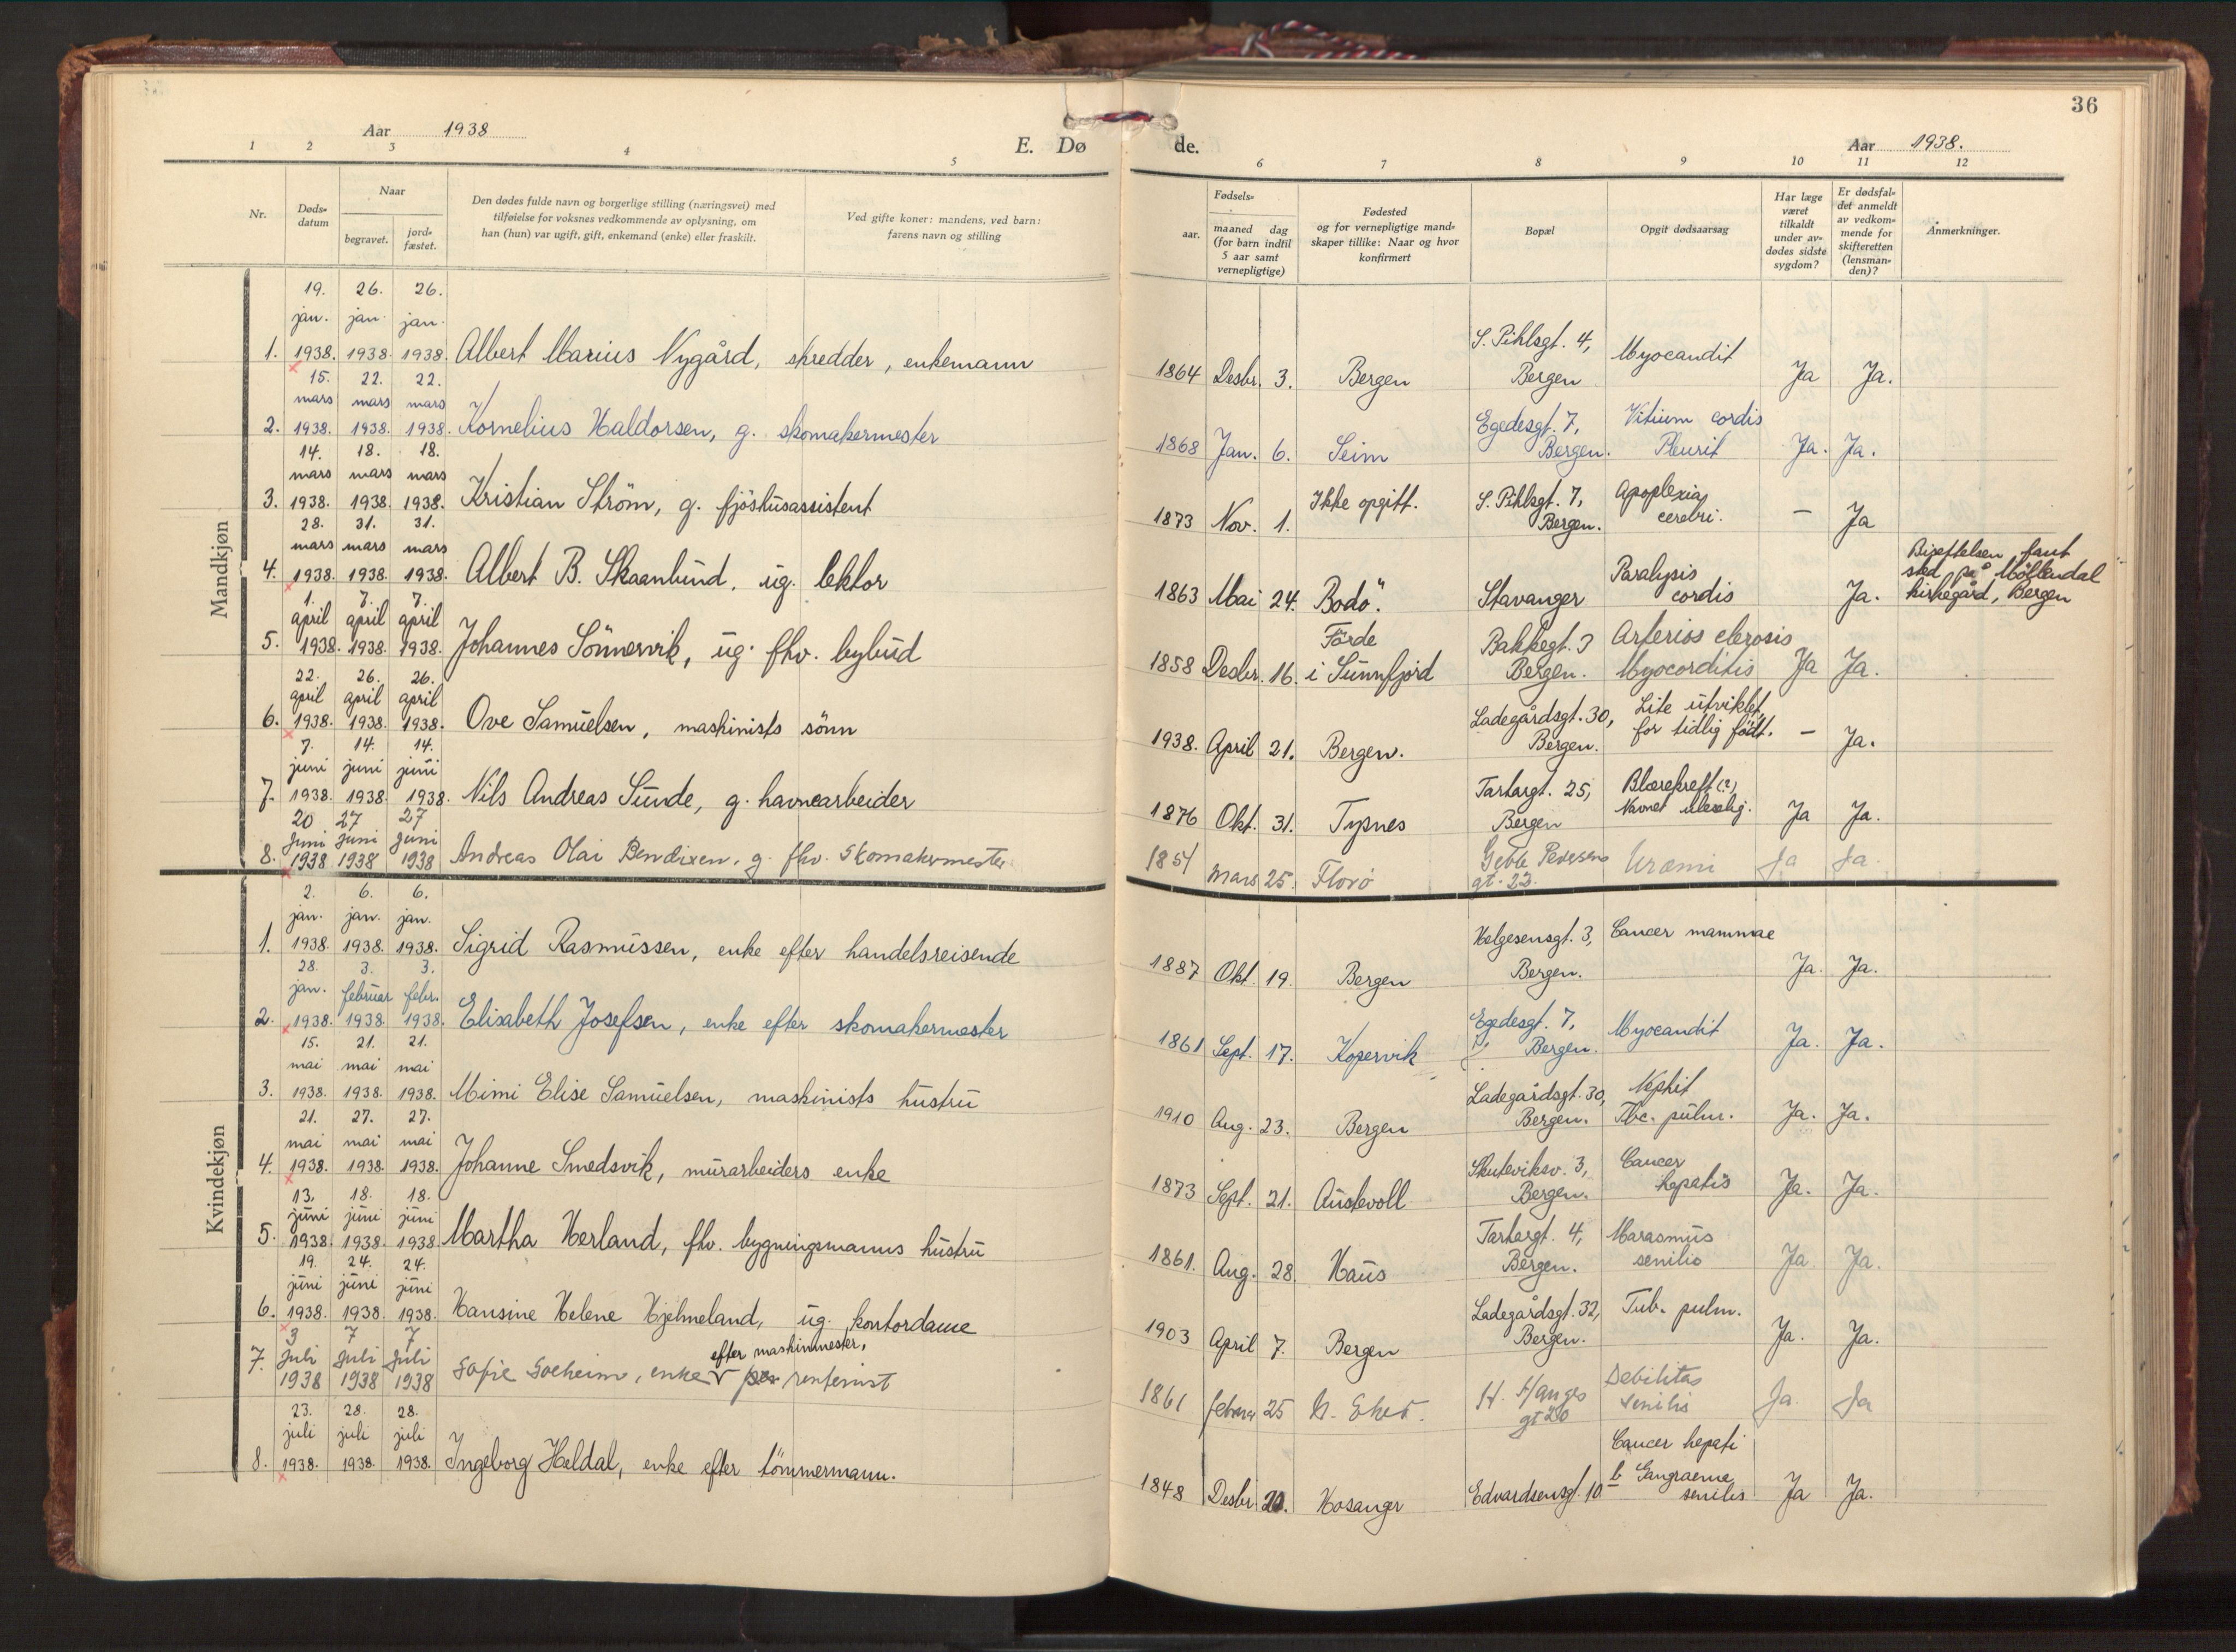 36
Aar 1938
E. Dø de.
Aar 1938.
1 2 3 4 5 6 7 8 9 10 11 12
Nr.
Døds-
datum
Naar
begravet.
jord-
fæstet.
Den dødes fulde navn og borgerlige stilling (næringsvei) med
tilføielse for voksnes vedkommende av oplysning, om
han (hun) var ugift, gift, enkemand (enke) eller fraskilt.
Ved gifte koner: mandens, ved barn:
farens navn og stilling
Fødsels-
aar.
maaned dag
(for barn indtil
5 aar samt
vernepligtige)
Fødested
og for vernepligtige mand-
skaper tillike: Naar og hvor
konfirmert
Bopæl
Opgit dødsaarsag
Har læge
været
tilkaldt
under av-
dødes sidste
sygdom?
Er dødsfal-
det anmeldt
av vedkom-
mende for
skifteretten
(lensman-
den)?
Anmerkninger.
Mandkjøn
19. 26. 26.
jan. jan. jan.
1. 1938. 1938. 1938. Albert Marius Nygård, skredder, enkemann
1864 Desbr. 3. Bergen
S. Pihlsgt. 4,
Bergen
Myocardit
Ja Ja.
15. 22. 22.
mars mars mars
2. 1938. 1938. 1938. Kornelius Haldorsen, g. skomakermester
1868 Jan. 6. Seim
Egedesgt. 7,
Bergen.
Vitium cordis
Pleurit
Ja. Ja.
14. 18. 18.
mars mars mars
3. 1938. 1938. 1938. Kristian Ström, g. fjöshusassistent
1873 Nov. 1. Ikke opgitt.
S. Pihlsgt. 7,
Bergen.
Apoplexia
cerebri.
– Ja
28. 31. 31.
mars mars mars
4. 1938. 1938. 1938. Albert B. Skaanlund, ug. lektor
1863 Mai 24. Bodö.
Stavanger
Paralysis
cordis
Ja.
Bisettelsen fant
sted på Möllendal
kirkegård, Bergen
1. 7. 7.
april april april
5. 1938. 1938. 1938. Johannes Sönnervik, ug. fhv. bybud
1858 Desbr. 16. Förde
i Sunnfjord
Bakkegt. 3
Bergen.
Arterios clerosis
Myocorditis
Ja Ja.
22. 26. 26.
april april april
6. 1938. 1938. 1938. Ove Samuelsen, maskinists sönn
1938. April 21. Bergen.
Ladegårdsgt. 30,
Bergen.
Lite utviklet,
for tidlig födt.
– Ja.
7. 14. 14.
juni juni juni
7. 1938. 1938. 1938. Nils Andreas Sunde, g. havnearbeider
1876 Okt. 31. Tysnes
Tartargt. 25,
Bergen
Blærekreft (?),
Navnet uleselig.
Ja Ja.
20 27 27
Juni Juni Juni
8. 1938 1938 1938 Andreas Olai Bendixen, g. fhv. Skomakermester
1851 Mars 25. Florö
Geble Pedersens
gt. 23.
Uræmi
Ja Ja.
Kvindekjøn
2. 6. 6.
jan. jan. jan.
1. 1938. 1938. 1938. Sigrid Rasmussen, enke efter handelsreisende
1887 Okt. 19. Bergen
Helgesensgt. 3,
Bergen.
Cancer mammae
Ja. Ja.
28. 3. 3.
jan. februar febr.
2. 1938. 1938. 1938. Elisabeth Josefsen, enke efter skomakermester
1861 Sept. 17. Kopervik
Egedesgt. 7,
Bergen.
Myocardit
Ja. Ja.
15. 21. 21.
mai mai mai
3. 1938. 1938. 1938. Mimi Elise Samuelsen, maskinists hustru
1910 Aug. 23. Bergen
Ladegårdsgt. 30,
Bergen.
Nephit
Tbc. pulm.
Ja. Ja.
21. 27. 27.
mai mai mai
4. 1938. 1938. 1938. Johanne Smedsvik, murarbeiders enke
1873 Sept. 21. Austevoll
Skuteviksv. 3,
Bergen.
Cancer
hepatis
Ja. Ja.
13. 18. 18.
juni juni juni
5. 1938. 1938. 1938. Martha Herland, fhv. bygningsmanns hustru
1861. Aug. 28. Haus
Tartargt. 4,
Bergen.
Marasmus
senilis
Ja Ja.
19. 24. 24.
juni juni juni
6. 1938. 1938. 1938. Hansine Helene Hjelmeland, ug. kontordame
1903 April 7. Bergen
Ladegårdsgt. 32,
Bergen.
Tub. pulm.
Ja. Ja.
3 7 7
Juli Juli Juli
efter maskinmester,
7. 1938 1938 1938 Sofie Soeheim, enke rentenist
1861 februar 25
H. Hauges
gt 20
Debilitas
senilis
Ja. Ja
23. 28. 28.
juli juli juli
8. 1938. 1938. 1938. Ingeborg Heldal, enke efter tömmermann.
1848 Desbr. 20. Hosanger
Edvardsensgt. 10
Cancer hepati
b Gangraene
senilis
Ja Ja.